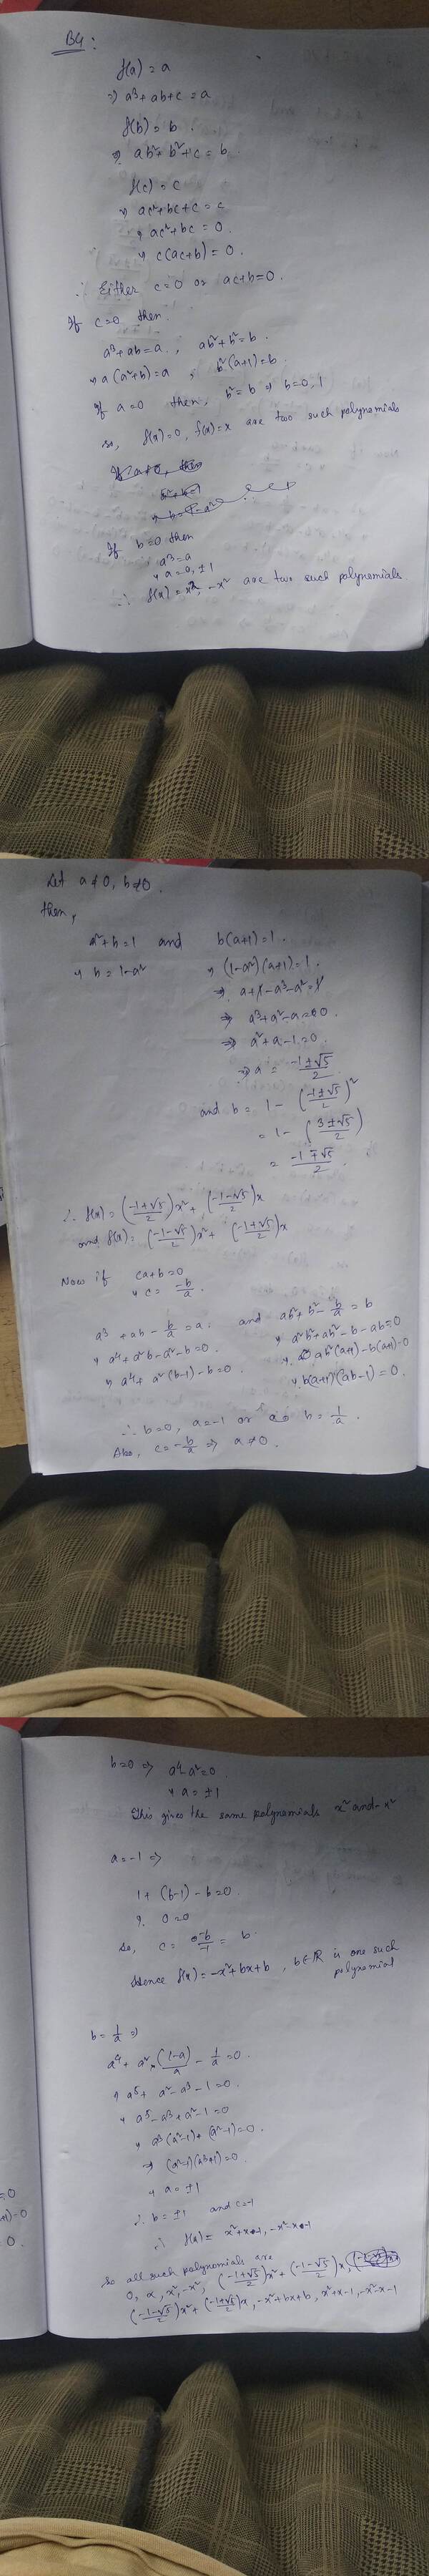 B4:
f(a) = a
⇒ a³ + ab + c = a
f(b) = b.
⇒ ab² + b² + c = b.
f(c) = c
⇒ ac² + bc + c = c
⇒ ac² + bc = 0.
⇒ c(ac+b) = 0.
∴ Either c=0 or ac+b=0.
If c=0 then.
a³+ab=a, ab²+b²=b.
⇒ a(a²+b)=a, b²(a+1)=b.
If a=0 then, b²=b ⇒ b=0,1
so, f(x)=0, f(x)=x are two such polynomials
If b=0 then
a³=a
⇒ a=0,±1
∴ f(x) = x², -x² are two such polynomials.
Let a≠0, b≠0.
then,
a²+b=1 and b(a+1)=1.
⇒ b=1-a² ⇒ (1-a²)(a+1)=1.
⇒ a+1-a³-a²=1
⇒ a³+a²-a=0.
⇒ a²+a-1=0.
⇒ a = (-1±√5)/2
and b = 1 - ((-1±√5)/2)²
= 1 - (3±√5)/2
= (-1∓√5)/2.
∴ f(x) = ((-1+√5)/2)x² + ((-1-√5)/2)x
and f(x) = ((-1-√5)/2)x² + ((-1+√5)/2)x
Now if ca+b=0
⇒ c = -b/a.
a³+ab-b/a=a, and ab²+b²-b/a=b
⇒ a⁴+a²b-a²-b=0. ⇒ a²b²+ab²-b-ab=0
⇒ a⁴+a²(b-1)-b=0. ⇒ ab²(a+1)-b(a+1)=0
⇒ b(a+1)(ab-1)=0.
∴ b=0, a=-1 or b=1/a.
Also, c=-b/a ⇒ a≠0.
b=0 ⇒ a⁴-a²=0.
⇒ a=±1
This gives the same polynomials x² and -x²
a=-1 ⇒
1+(b-1)-b=0
⇒ 0=0
So, c = -b/-1 = b.
Hence f(x) = -x²+bx+b, b∈ℝ is one such
polynomial
b=1/a ⇒
a⁴+a²·(1-a)/a - 1/a = 0.
⇒ a⁵+a²-a³-1=0.
⇒ a⁵-a³+a²-1=0
⇒ a³(a²-1)+(a²-1)=0.
⇒ (a²-1)(a³+1)=0.
⇒ a=±1
∴ b=±1 and c=-1
∴ f(x) = x²+x-1, -x²-x-1
So all such polynomials are
0, x, x², -x², ((-1+√5)/2)x² + ((-1-√5)/2)x,
((-1-√5)/2)x² + ((-1+√5)/2)x, -x²+bx+b, x²+x-1, -x²-x-1
=0
+1)=0
0.